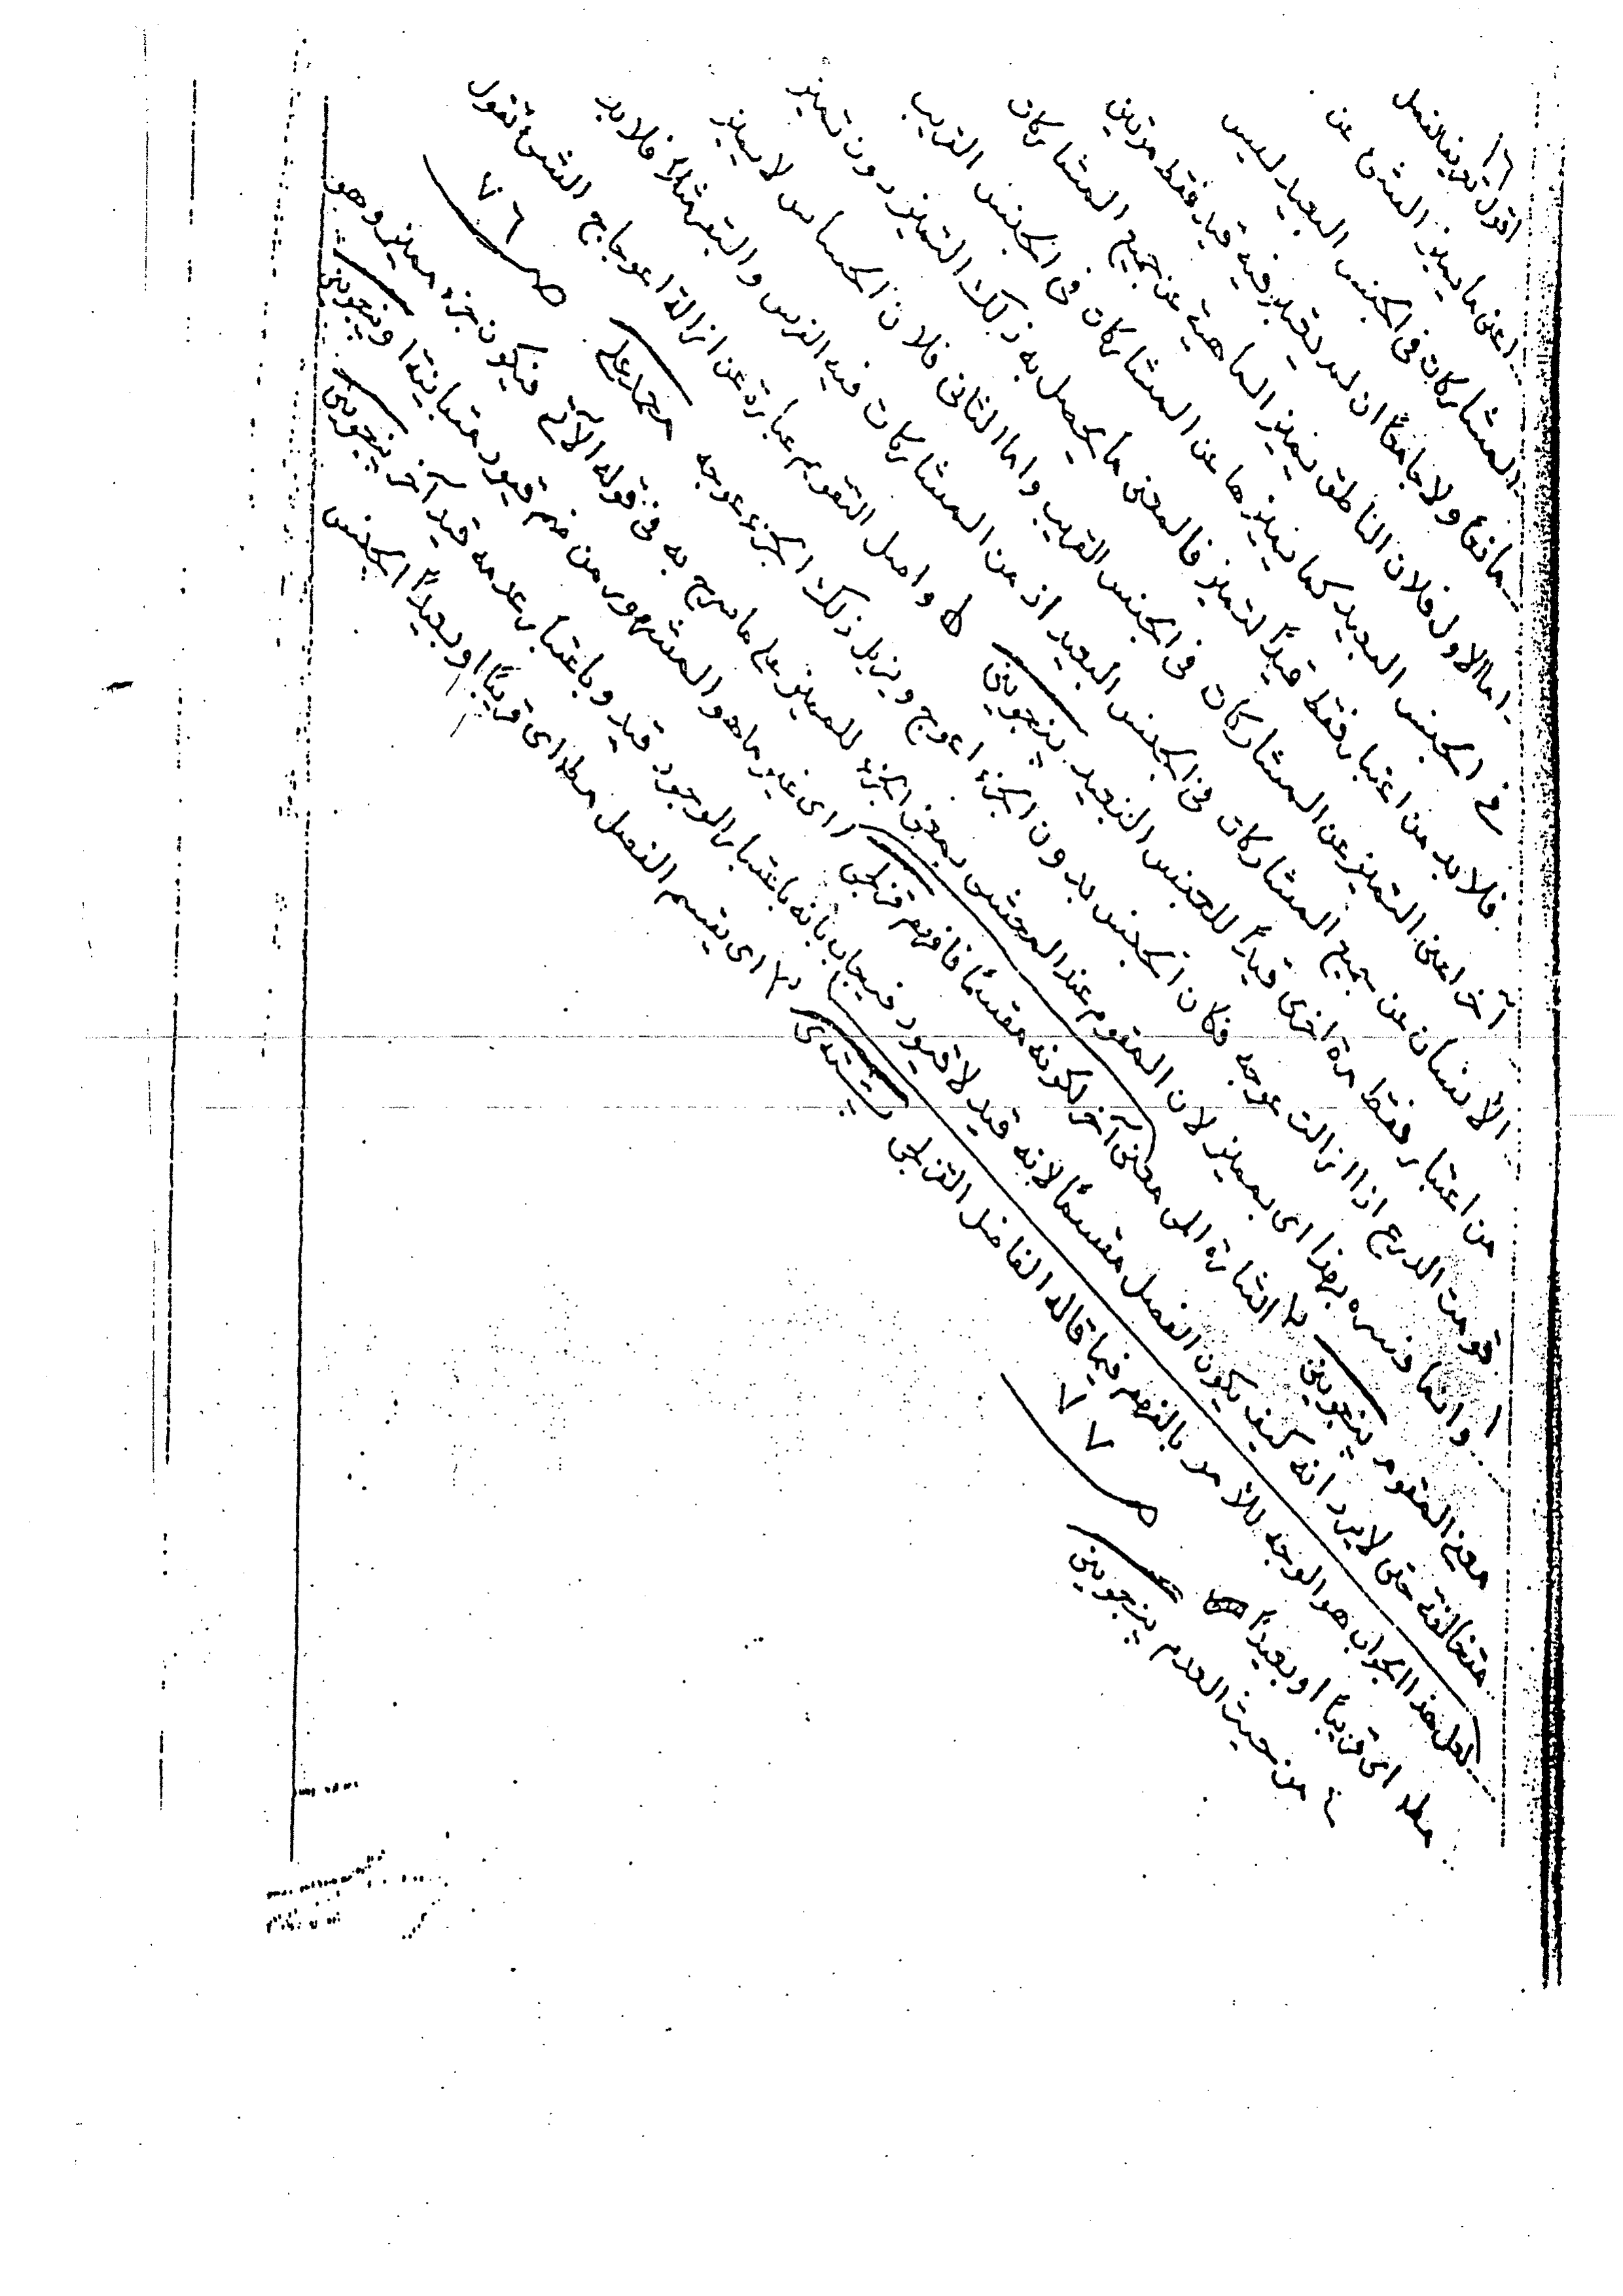 ١٦
اقول تعريف الفصل
اعنى ما يميز الشئ عن
المشاركات فى الجنس البعيد ليس
مانعا ولا جامعًا ان لم يعتبر فيه قيد فقط مرتين
اما الاول فلان الناطق يميز الماهية عن جميع المشاركات
فى الجنس البعيد كما يميزها عن المشاركات فى الجنس القريب
فلا بد من اعتبار فقط قيدًا لتميز فالمعنى ما يحصل به ذلك التميز دون تميز
آخر اعنى التميز عن المشاركات فى الجنس القريب واما الثانى فلان الحساس لا يميز
الأنسان عن جميع المشاركات فى الجنس البعيد اذ من المشاركات فيه الفرس والبقر مثلاً فلا بد
من اعتبار فقط مرة اخرى قيدًا للجنس البعيد ينجوينى ط واصل التقويم عبارة عن ازالة اعوجاج الشئ تقول
قومت الدرع اذا ازالت عوجه فكان الجنس بدون الجزء اعوج ويزيل ذلك الجزء عوجه محمد على ص ٧٦
وانما فسره بهذا اى بمميز لان المقوم عند المحشى بمعنى الجزء المميز على ما صرح به فى قوله الآتى فيكون جزء مميز وهو
معنى المقوم ينجوينى لا اشارة الى معنى آخر لكونه مقسمًا فافهم قزلجى اى غير ما هو المشهور من ضم قيود متباينة او ينجوينى
متخالفة حتى لا يرد انه كيف يكون الفصل مقسمًا لانه قيد لا قيود فيجاب بانه باعتبار الوجود قيد وباعتبار عدمه قيد آخر ينجوينى
لعل هذا الجواب هو الوجه للأمر بالفهم فيما قاله الفاضل القزلجى لا اى يقسم الفصل مط اى قريبًا او بعيدًا الجنس
مط اى قريبًا او بعيدًا ص ٧٧
من حيث العدم ينجوينى